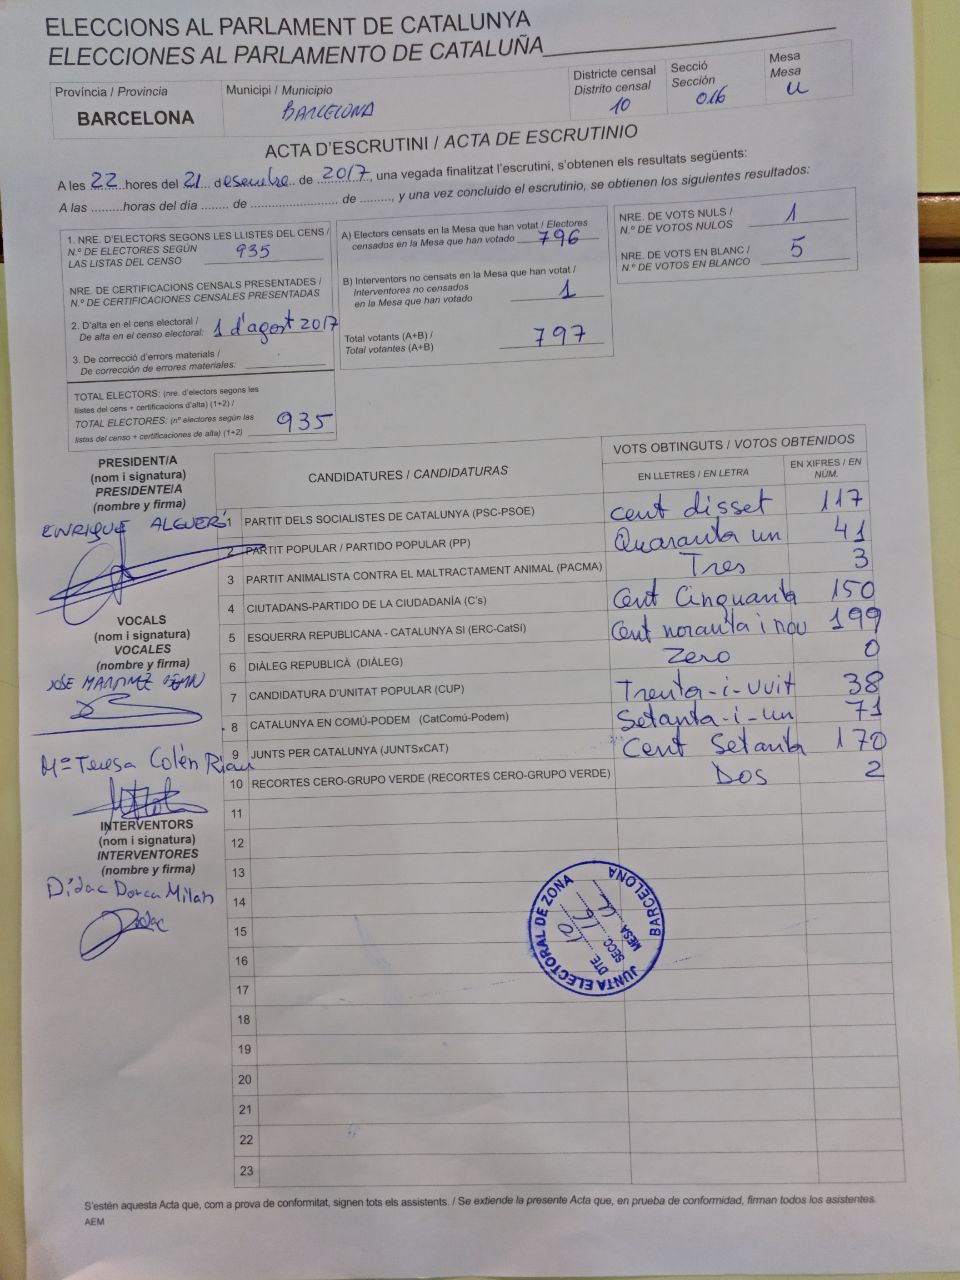 ELECCIONS AL PARLAMENT DE CATALUNYA
ELECCIONES AL PARLAMENTO DE CATALUÑA
Província / Provincia
BARCELONA
Municipi / Municipio
BARCELONA
Districte censal
Distrito censal
10
Secció
Sección
016
Mesa
Mesa
U
ACTA D'ESCRUTINI / ACTA DE ESCRUTINIO
A les 22 hores del 21 desembre de 2017, una vegada finalitzat l'escrutini, s'obtenen els resultats següents:
A las .........horas del día ........ de ......................... de ........., y una vez concluido el escrutinio, se obtienen los siguientes resultados:
1. NRE. D'ELECTORS SEGONS LES LLISTES DEL CENS /
N.º DE ELECTORES SEGÚN
LAS LISTAS DEL CENSO 935
NRE. DE CERTIFICACIONS CENSALS PRESENTADES /
N.º DE CERTIFICACIONES CENSALES PRESENTADAS
2. D'alta en el cens electoral /
De alta en el censo electoral: 1 d'agost 2017
3. De correcció d'errors materials /
De corrección de errores materiales:
TOTAL ELECTORS: (nre. d'electors segons les
llistes del cens + certificacions d'alta) (1+2) /
TOTAL ELECTORES: (nº electores según las
listas del censo + certificaciones de alta) (1+2) 935
A) Electors censats en la Mesa que han votat / Electores
censados en la Mesa que han votado 796
B) Interventors no censats en la Mesa que han votat /
Interventores no censados
en la Mesa que han votado 1
Total votants (A+B) /
Total votantes (A+B) 797
NRE. DE VOTS NULS /
N.º DE VOTOS NULOS 1
NRE. DE VOTS EN BLANC /
N.º DE VOTOS EN BLANCO 5
PRESIDENT/A
(nom i signatura)
PRESIDENTE/A
(nombre y firma)
ENRIQUE ALGUERÓ
VOCALS
(nom i signatura)
VOCALES
(nombre y firma)
JOSE MARTINEZ
Mª Teresa Colén Riau
INTERVENTORS
(nom i signatura)
INTERVENTORES
(nombre y firma)
Dídac Dorca Milan
Dídac
CANDIDATURES / CANDIDATURAS
VOTS OBTINGUTS / VOTOS OBTENIDOS
EN LLETRES / EN LETRA
EN XIFRES / EN NÚM.
1 PARTIT DELS SOCIALISTES DE CATALUNYA (PSC-PSOE) cent disset 117
2 PARTIT POPULAR / PARTIDO POPULAR (PP) Quaranta un 41
3 PARTIT ANIMALISTA CONTRA EL MALTRACTAMENT ANIMAL (PACMA) Tres 3
4 CIUTADANS-PARTIDO DE LA CIUDADANÍA (C's) Cent Cinquanta 150
5 ESQUERRA REPUBLICANA - CATALUNYA SI (ERC-CatSí) Cent noranta i nou 199
6 DIÀLEG REPUBLICÀ (DIÀLEG) Zero 0
7 CANDIDATURA D'UNITAT POPULAR (CUP) Trenta-i-vuit 38
8 CATALUNYA EN COMÚ-PODEM (CatComú-Podem) Setanta-i-un 71
9 JUNTS PER CATALUNYA (JUNTSxCAT) Cent Setanta 170
10 RECORTES CERO-GRUPO VERDE (RECORTES CERO-GRUPO VERDE) Dos 2
11
12
13
14
15
16
17
18
19
20
21
22
23
JUNTA ELECTORAL DE ZONA
BARCELONA
DTE. 10
SECC. 16
MESA U
S'estén aquesta Acta que, com a prova de conformitat, signen tots els assistents. / Se extiende la presente Acta que, en prueba de conformidad, firman todos los asistentes.
AEM